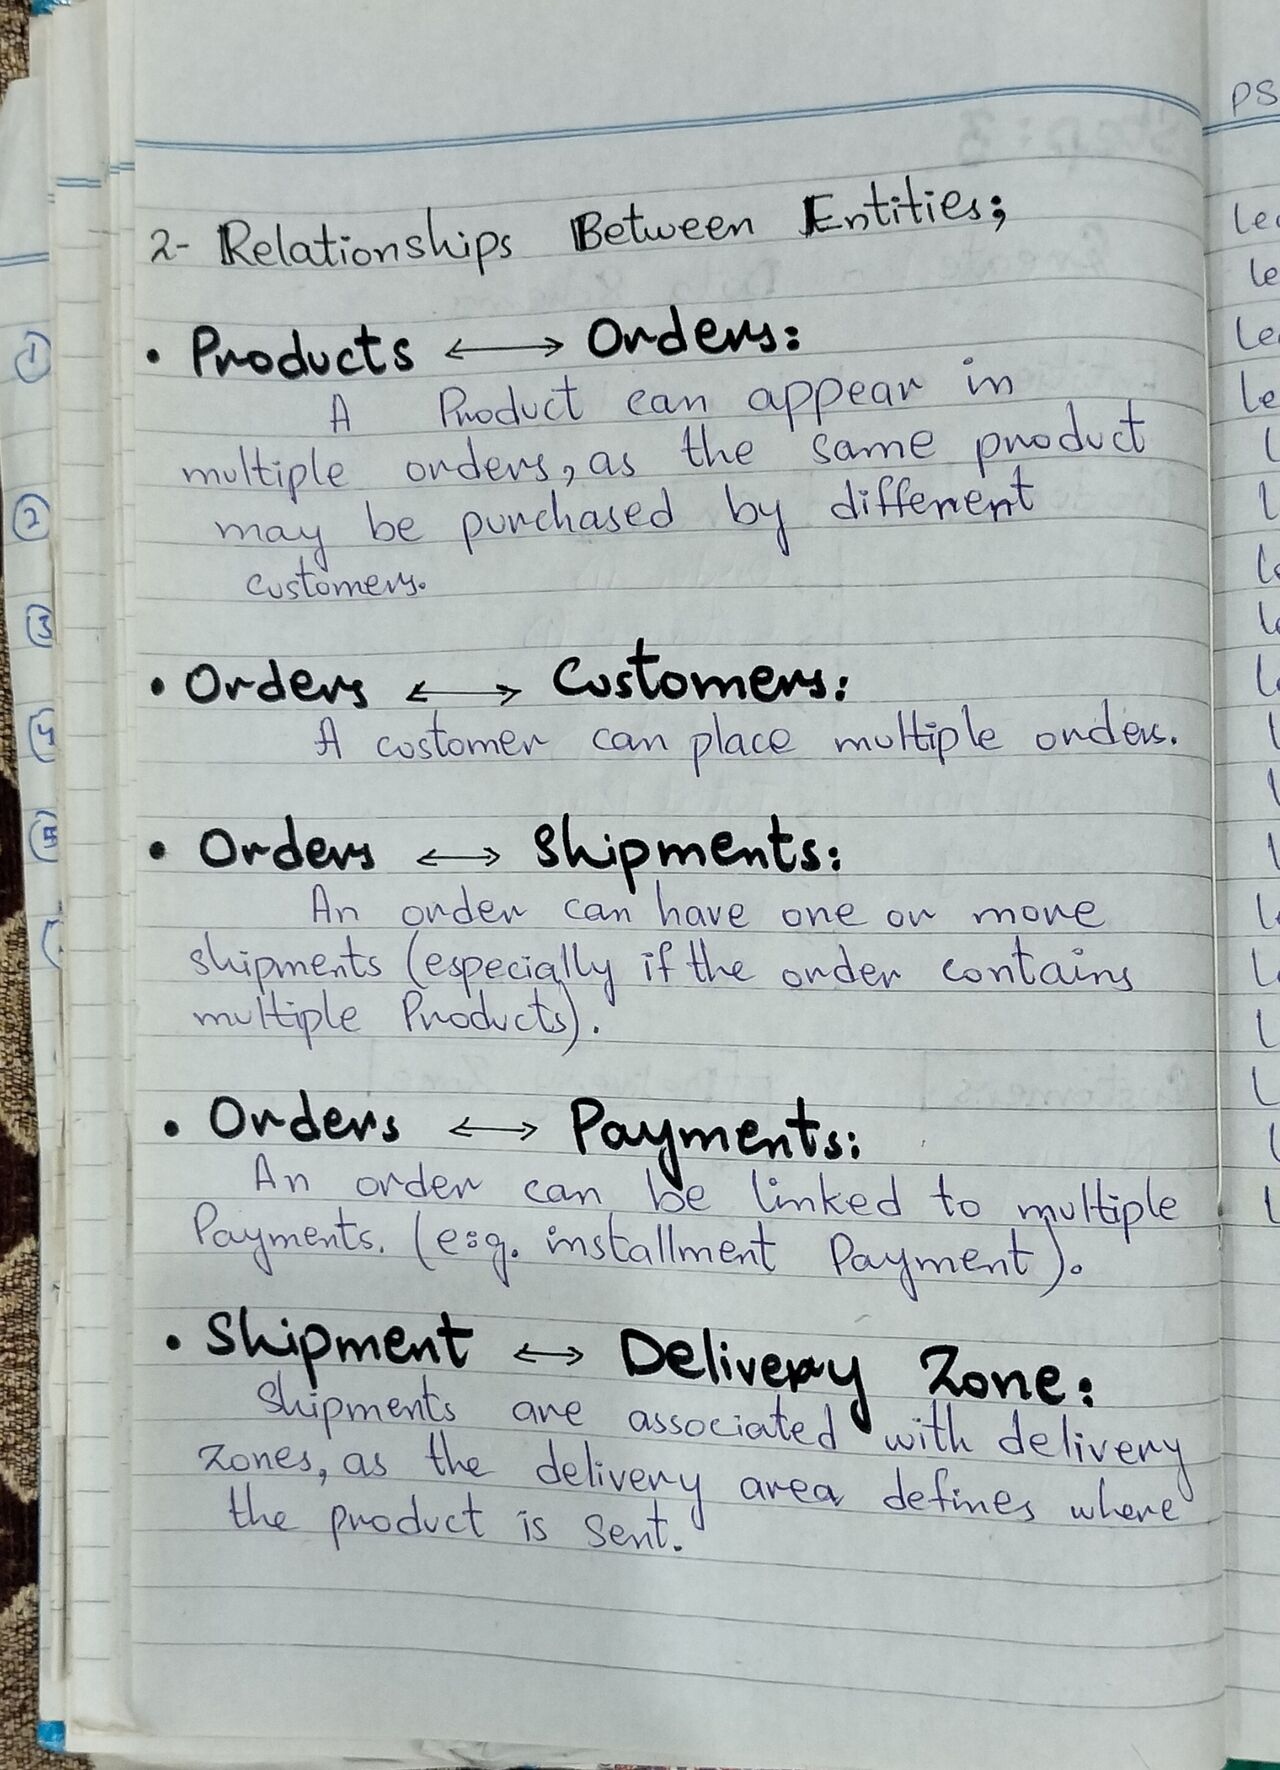 2- Relationships Between Entities;
• Products ⟷ Orders:
A Product can appear in
multiple orders, as the same product
may be purchased by different
customers.
• Orders ⟷ Customers:
A customer can place multiple orders.
• Orders ⟷ Shipments:
An order can have one or more
shipments (especially if the order contains
multiple Products).
• Orders ⟷ Payments:
An order can be linked to multiple
Payments. (e:g. installment Payment).
• Shipment ⟷ Delivery Zone:
Shipments are associated with delivery
zones, as the delivery area defines where
the product is sent.
1
2
3
4
5
PS